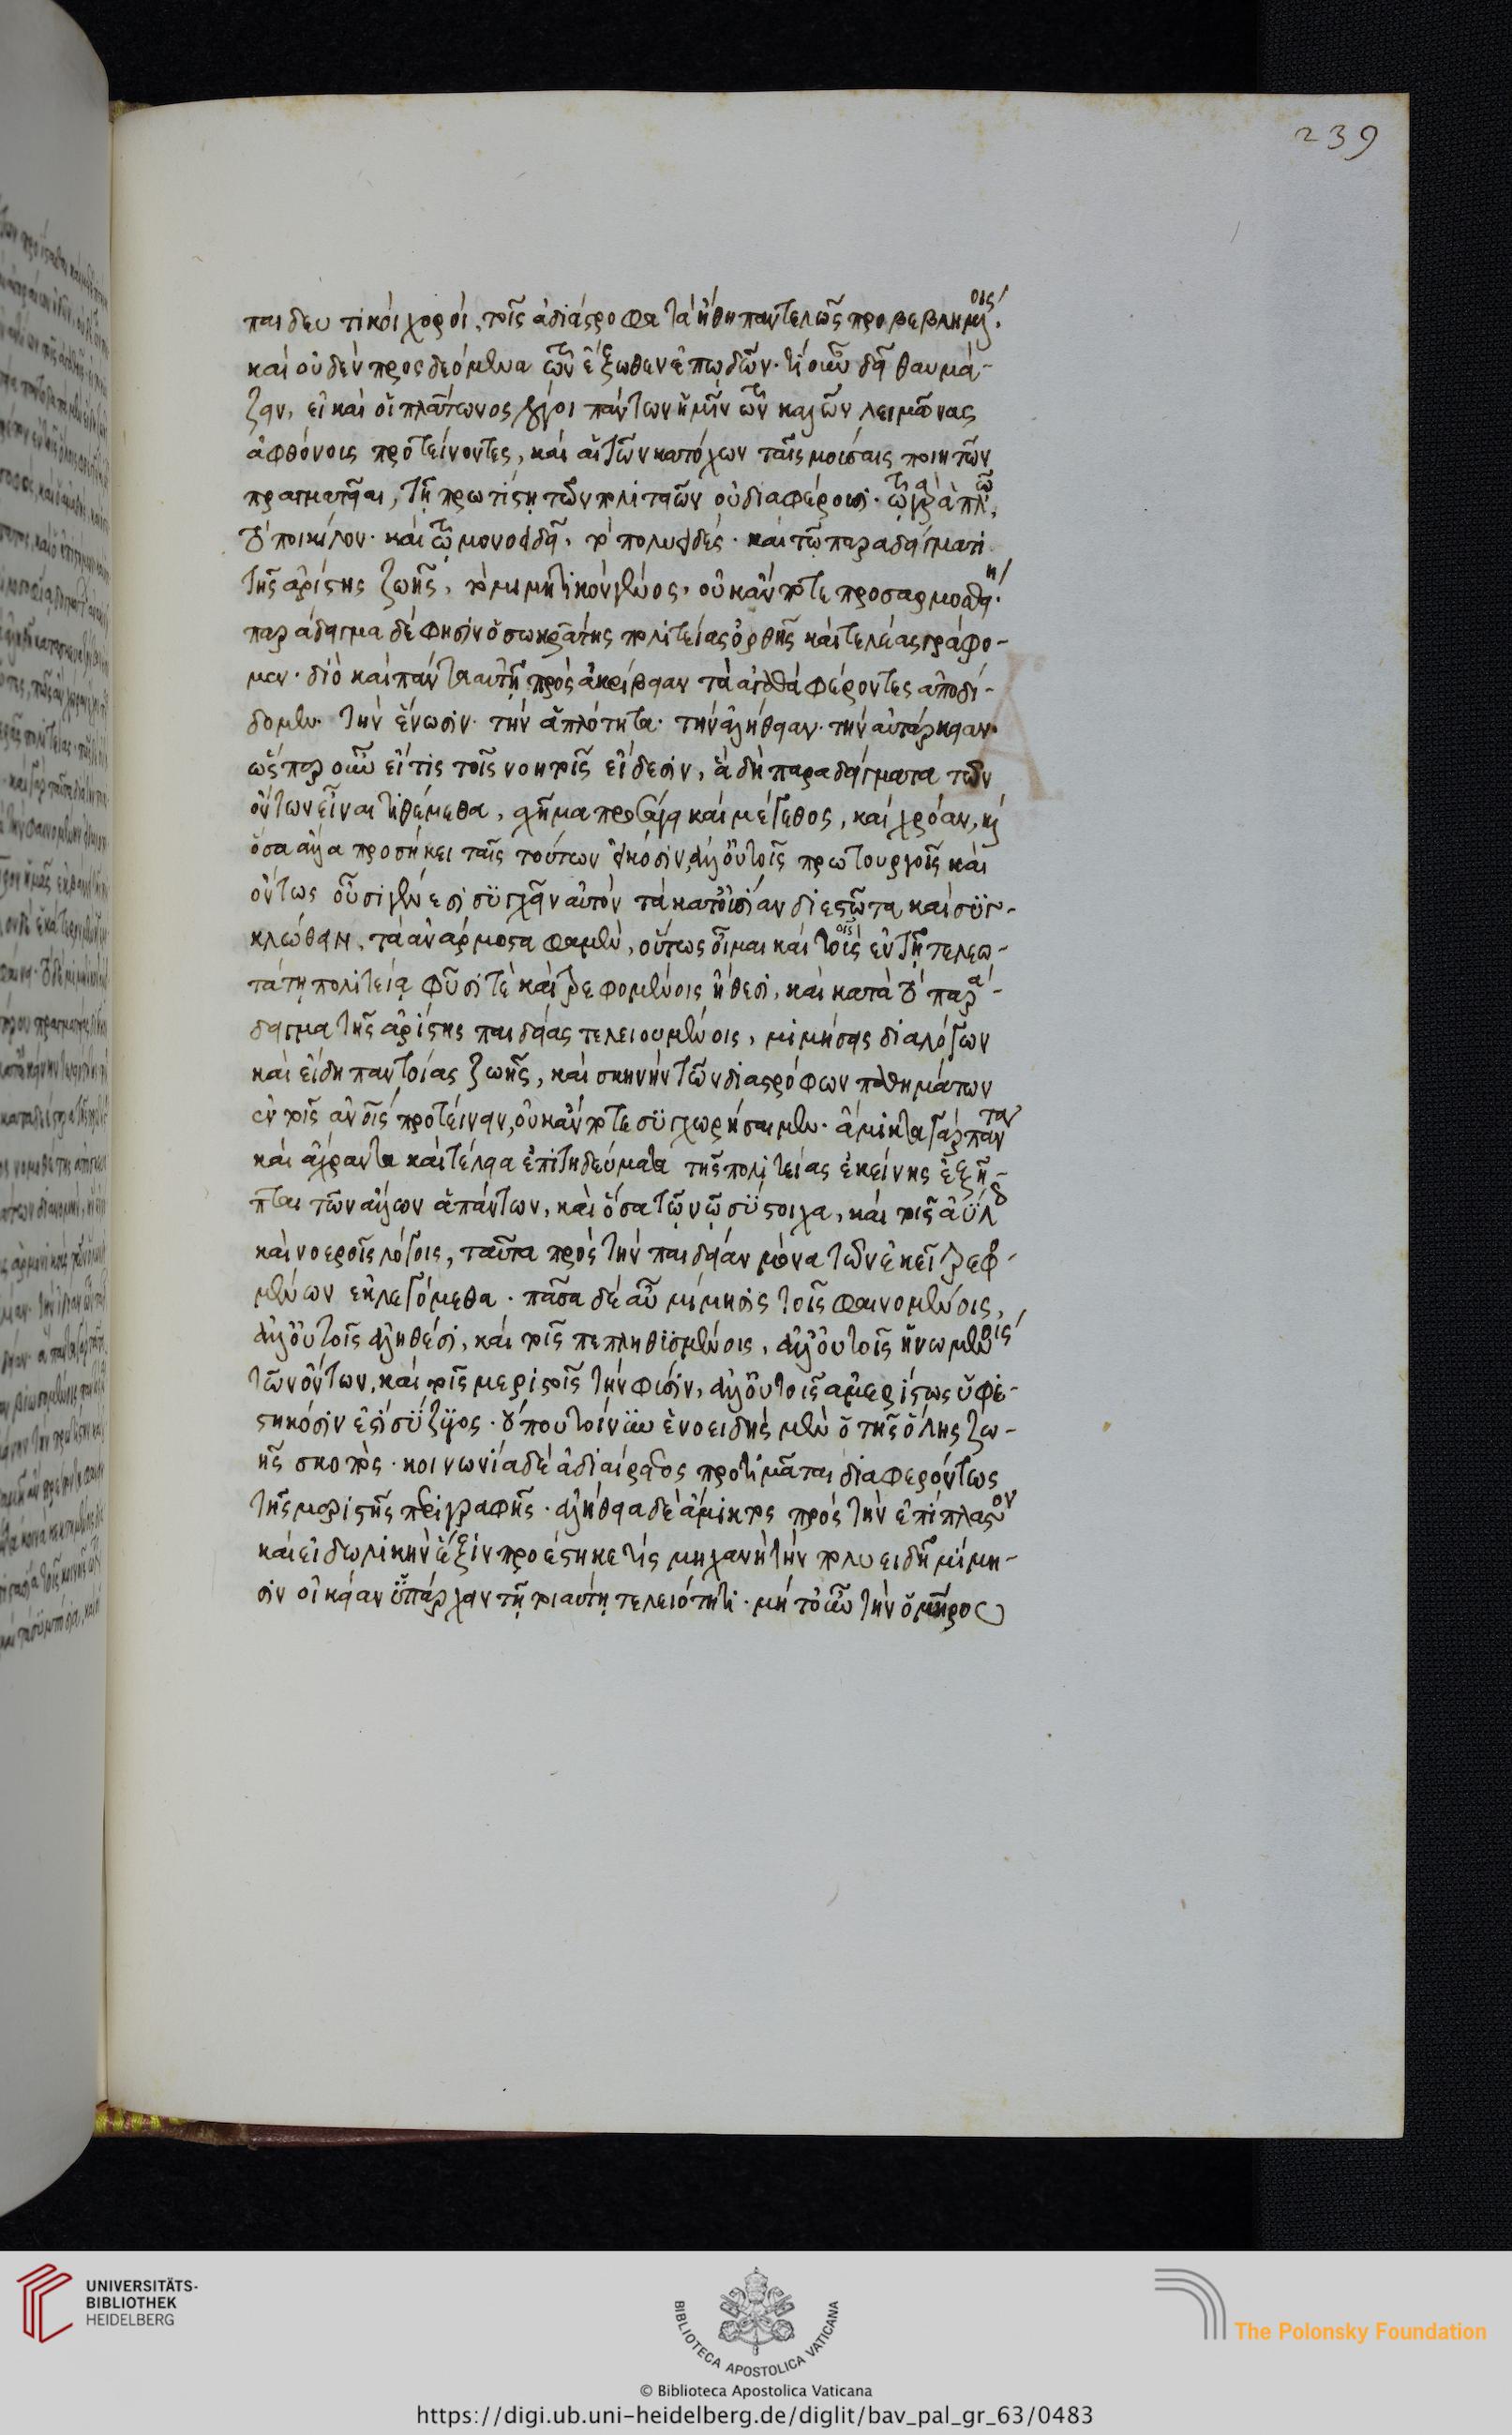 239
παιδευτικοὶ χοροί, τοῖς ἀδιάστροφα τὰ ἤθη παντελῶς προβεβλημένοις.
καὶ οὐδὲν προσδεόμενα τῶν ἔξωθεν ἐπωδῶν. τί οὖν δεῖ θαυμά-
ζειν, εἰ καὶ οἱ πλάτωνος λόγοι πάντων ἡμῖν τῶν καλῶν λειμῶνας
ἀφθόνοις προτείνοντες, καὶ αἱ τῶν κατόχων ταῖς μούσαις ποιητῶν
πραγματεῖαι, τῇ πρωτίστῃ τῶν πολιτειῶν οὐ διαφέρουσι. τῷ γὰρ ἁπλῷ,
τὸ ποικίλον. καὶ τῷ μονοειδεῖ, τὸ πολυειδές. καὶ τῷ παραδείγματι
τῆς ἀρίστης ζωῆς, τὸ μιμητικὸν γένος, οὐκ ἄν ποτε προσαρμοσθείη.
παράδειγμα δὲ φησὶν ὁ σωκράτης πολιτείας ὀρθῆς καὶ τελέας γράφο-
μεν. διὸ καὶ πάντα αὐτῇ πρὸς ἀκρίβειαν τὰ ἀγαθὰ φέροντες ἀποδί-
δομεν. τὴν ἕνωσιν. τὴν ἁπλότητα. τὴν ἀλήθειαν. τὴν αὐτάρκειαν.
ὥσπερ οὖν εἴ τις τοῖς νοητοῖς εἴδεσιν, ἃ δὴ παραδείγματα τῶν
ὄντων εἶναι τιθέμεθα, σχῆμα προσάγει καὶ μέγεθος, καὶ χρόαν, καὶ
ὅσα ἄλλα προσήκει ταῖς τούτων εἰκόσιν, ἀλλ' οὐ τοῖς πρωτουργοῖς καὶ
ὄντως οὖσι γένεσι συγχεῖν αὐτὸν τὰ κατ' οὐσίαν διεστῶτα καὶ συγ-
κλώθειν, τὰ ἀνάρμοστα φαμὲν, οὕτως οἶμαι καὶ τοῖς ἐν τῇ τελεω-
τάτῃ πολιτείᾳ φῦσί τε καὶ τρεφομένοις ἤθεσι, καὶ κατὰ τὸ παρά-
δειγμα τῆς ἀρίστης παιδείας τελειουμένοις, μιμήσεις διαλόγων
καὶ εἴδη παντοίας ζωῆς, καὶ σκηνὴν τῶν διαστρόφων παθημάτων
ἐν τοῖς ἀνοις προτείνειν, οὐκ ἄν ποτε συγχωρήσαιμεν. ἄμικτα γὰρ πάντα
καὶ ἄχραντα καὶ τέλεια ἐπιτηδεύματα τῆς πολιτείας ἐκείνης ἐξῄ-
πται τῶν ἄλλων ἁπάντων, καὶ ὅσα τῷ νῷ σύστοιχα, καὶ τοῖς ἀΰλοις
καὶ νοεροῖς λόγοις, ταῦτα πρὸς τὴν παιδείαν μόνα τῶν ἐκεῖ τρεφο-
μένων ἐκλεγόμεθα. πᾶσα δὲ αὖ μίμησις τοῖς φαινομένοις,
ἀλλ' οὐ τοῖς ἀληθέσι, καὶ τοῖς πεπληθυσμένοις, ἀλλ' οὐ τοῖς ἡνωμένοις
τῶν ὄντων, καὶ τοῖς μεριστοῖς τὴν φύσιν, ἀλλ' οὐ τοῖς ἀμερίστως ὑφε-
στηκόσιν ἐστὶ σύζυγος. ὅπου τοίνυν ἑνοειδὴς μὲν ὁ τῆς ὅλης ζω-
ῆς σκοπὸς. κοινωνία δὲ ἀδιαίρετος προτιμᾶται διαφερόντως
τῆς μεριστῆς περιγραφῆς. ἀλήθεια δὲ ἄμικτος πρὸς τὴν ἐπίπλαστον
καὶ εἰδωλικὴν ἕξιν προέστηκε τίς μηχανὴ τὴν πολυειδῆ μίμη-
σιν οἰκείαν ὑπάρχειν τῇ τοιαύτῃ τελειότητι. μὴ τοίνυν τὴν ὁμήρου
UNIVERSITÄTS-
BIBLIOTHEK
HEIDELBERG
BIBLIOTECA APOSTOLICA VATICANA
The Polonsky Foundation
© Biblioteca Apostolica Vaticana
https://digi.ub.uni-heidelberg.de/diglit/bav_pal_gr_63/0483